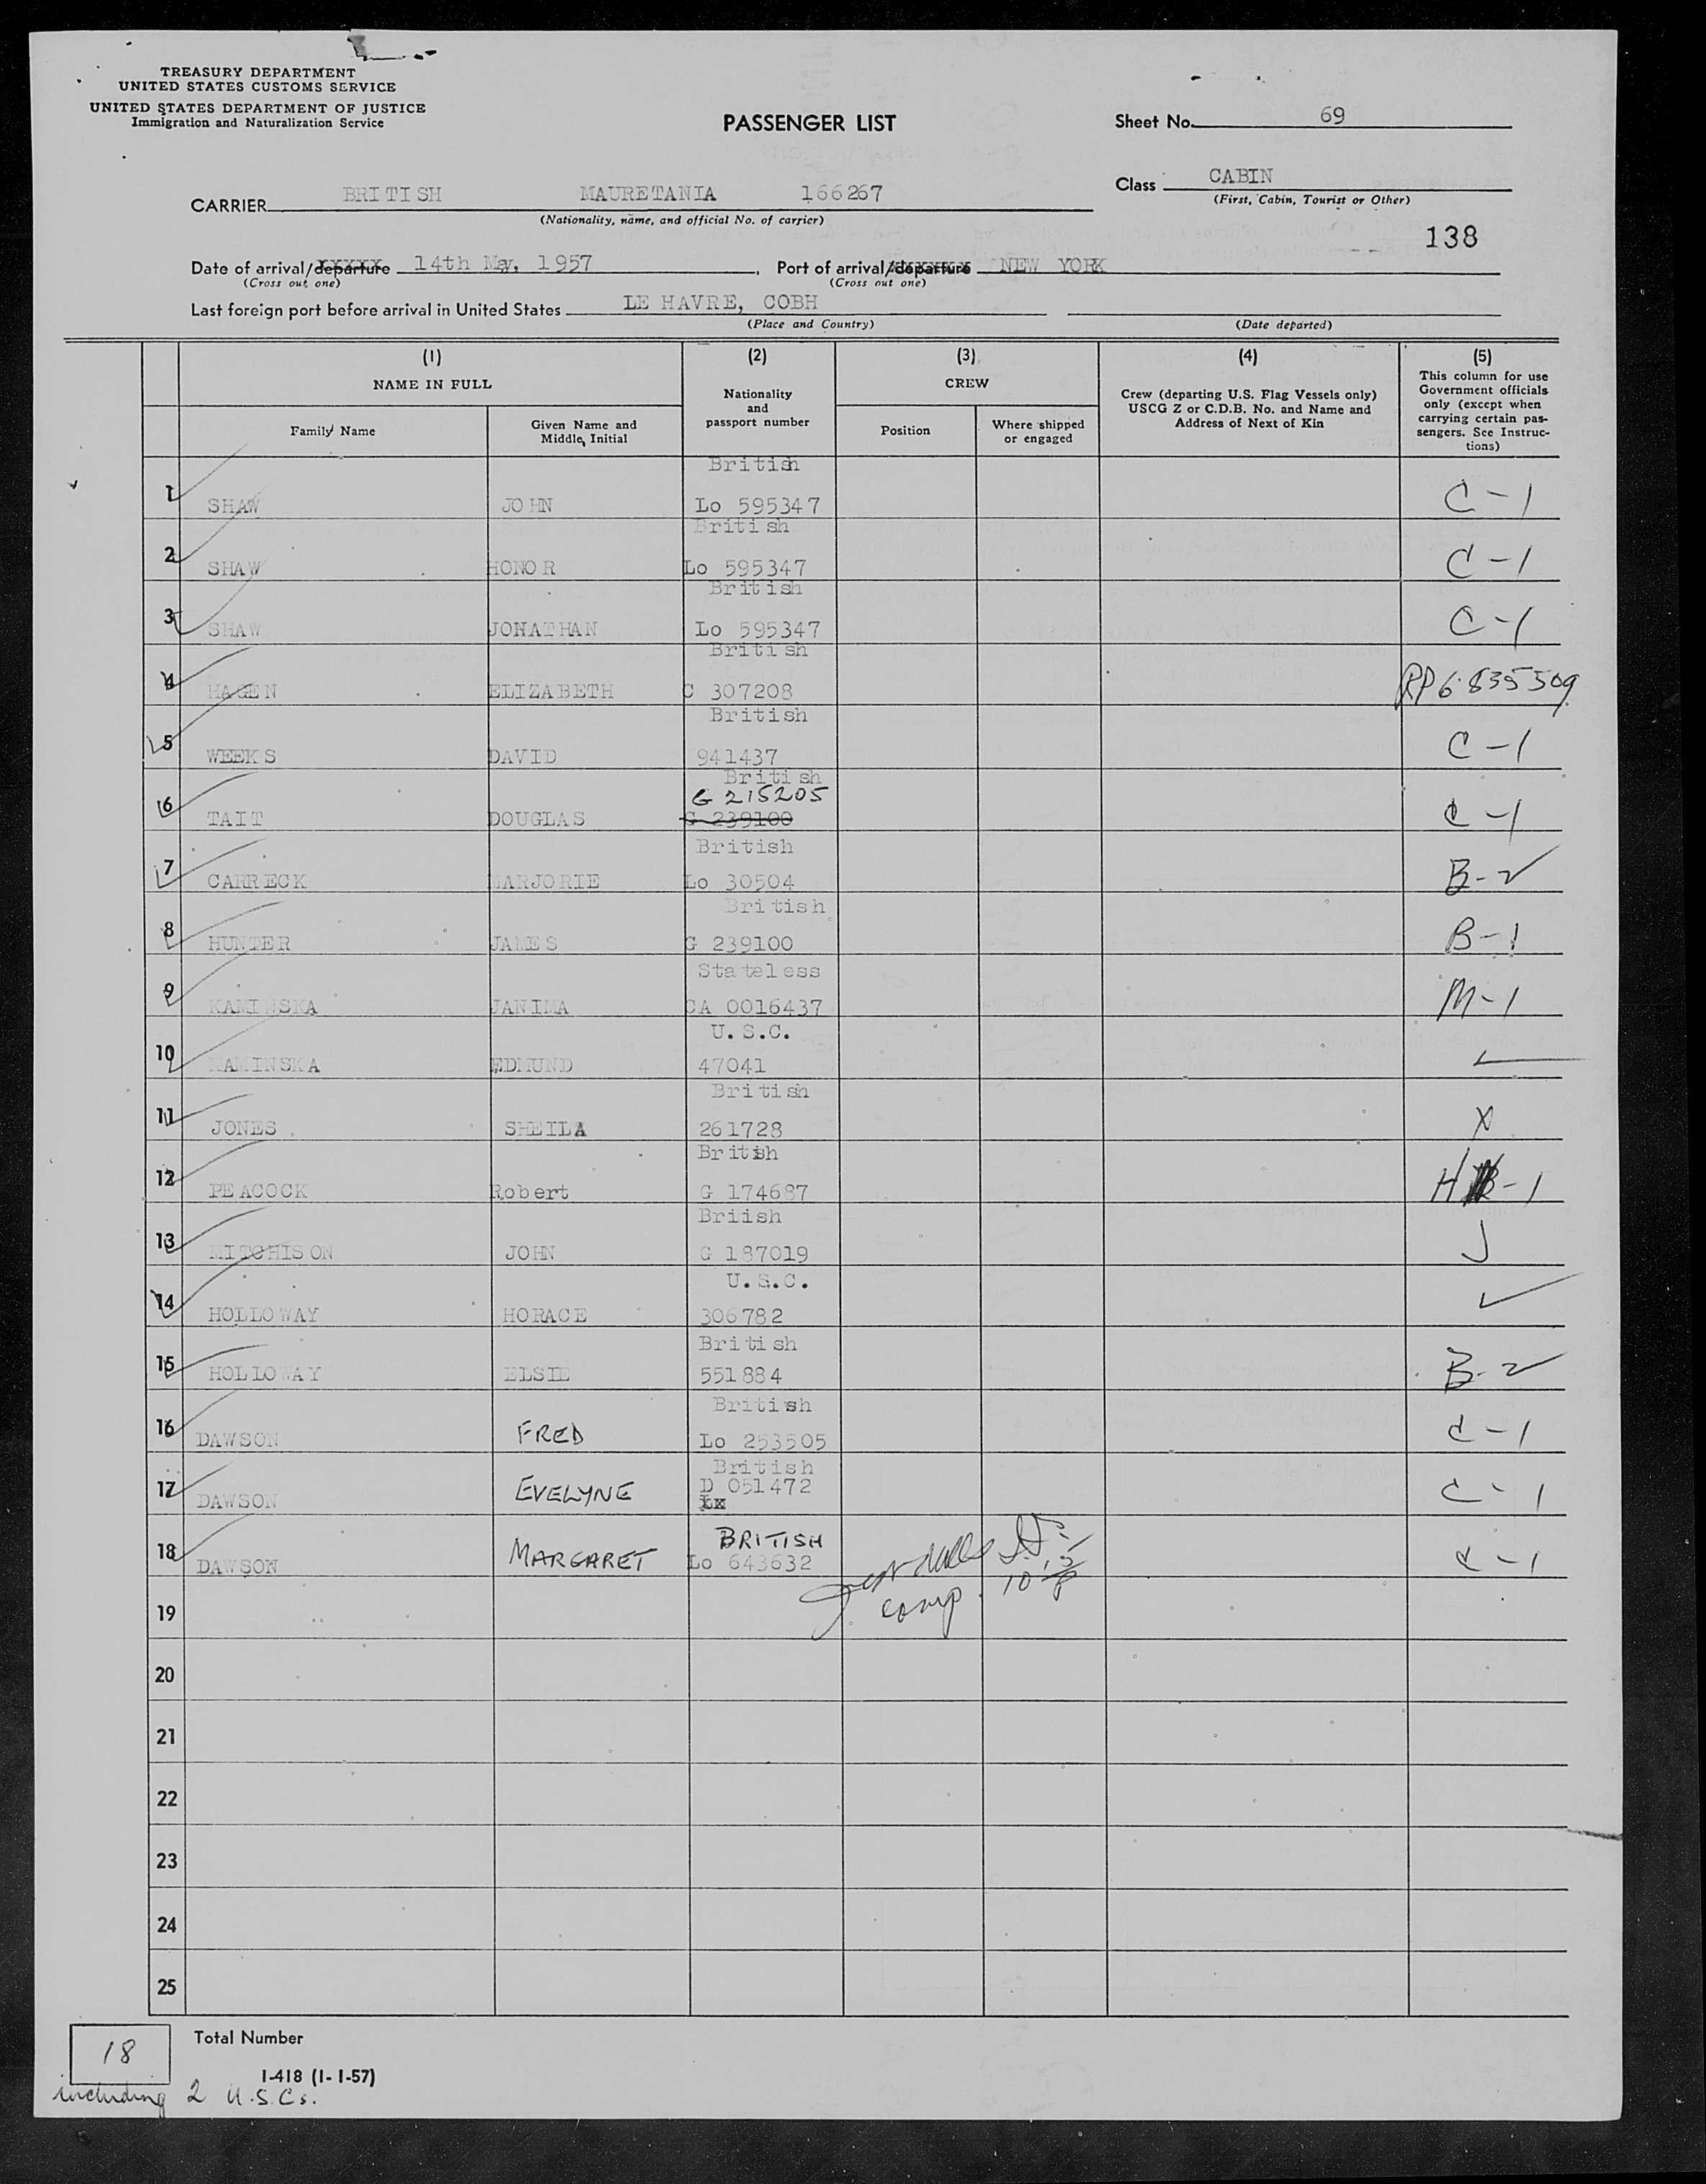 TREASURY DEPARTMENT
UNITED STATES CUSTOMS SERVICE
UNITED STATES DEPARTMENT OF JUSTICE
Immigration and Naturalization Service
PASSENGER LIST
Sheet No. 69
Class CABIN
(First, Cabin, Tourist or Other)
CARRIER BRITISH MAURETANIA 166267
(Nationality, name, and official No. of carrier)
138
Date of arrival/departure 14th May, 1957, Port of arrival/departure NEW YORK
(Cross out one) (Cross out one)
Last foreign port before arrival in United States LE HAVRE, COBH
(Place and Country) (Date departed)
(1) (2) (3) (4) (5)
NAME IN FULL
Family Name
Given Name and Middle Initial
Nationality and passport number
CREW
Position
Where shipped or engaged
Crew (departing U.S. Flag Vessels only)
USCG Z or C.D.B. No. and Name and
Address of Next of Kin
This column for use
Government officials
only (except when
carrying certain pas-
sengers. See Instruc-
tions)
British
1 SHAW JOHN Lo 595347 C-1
British
2 SHAW HONOR Lo 595347 C-1
British
3 SHAW JONATHAN Lo 595347 C-1
British
4 HAGEN ELIZABETH C 307208 RP 6 835 509
British
5 WEEKS DAVID 941437 C-1
British
G 215205
6 TAIT DOUGLAS G 239100 C-1
British
7 CARRECK MARJORIE Lo 30504 B-2
British
8 HUNTER JAMES G 239100 B-1
Stateless
9 KAMINSKA JANINA CA 0016437 M-1
U.S.C.
10 KAMINSKA EDMUND 47041
British
11 JONES SHEILA 261728 X
British
12 PEACOCK Robert G 174687 H-1
Briish
13 MITCHISON JOHN G 187019 J
U.S.C.
14 HOLLOWAY HORACE 306782
British
15 HOLLOWAY ELSIE 551884 B-2
British
16 DAWSON FRED Lo 253505 C-1
British
17 DAWSON EVELYNE D 051472 C-1
Lx
BRITISH
18 DAWSON MARGARET Lo 643632 C-1
comp.
19
20
21
22
23
24
25
18 Total Number
I-418 (1-1-57)
including 2 U.S.Cs.